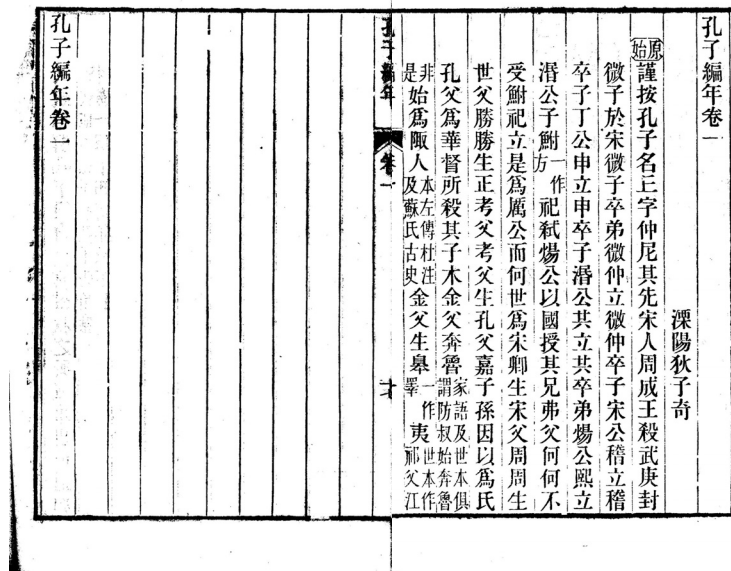 孔子編年卷一
溧陽狄子奇
原始謹按孔子名丘字仲尼其先宋人周成王殺武庚封
微子於宋微子卒弟微仲立微仲卒子宋公稽立稽
卒子丁公申立申卒子湣公共立共卒弟煬公熙立
湣公子鮒一作方祀弒煬公以國授其兄弗父何何不
受鮒祀立是爲厲公而何世爲宋卿生宋父周周生
世父勝勝生正考父考父生孔父嘉子孫因以爲氏
孔父爲華督所殺其子木金父奔魯家語及世本俱謂防叔始奔魯
非是始爲陬人本左傳杜注及蘇氏古史金父生皋一作睪夷世本作祁父江
孔子編年 卷一
孔子編年卷一